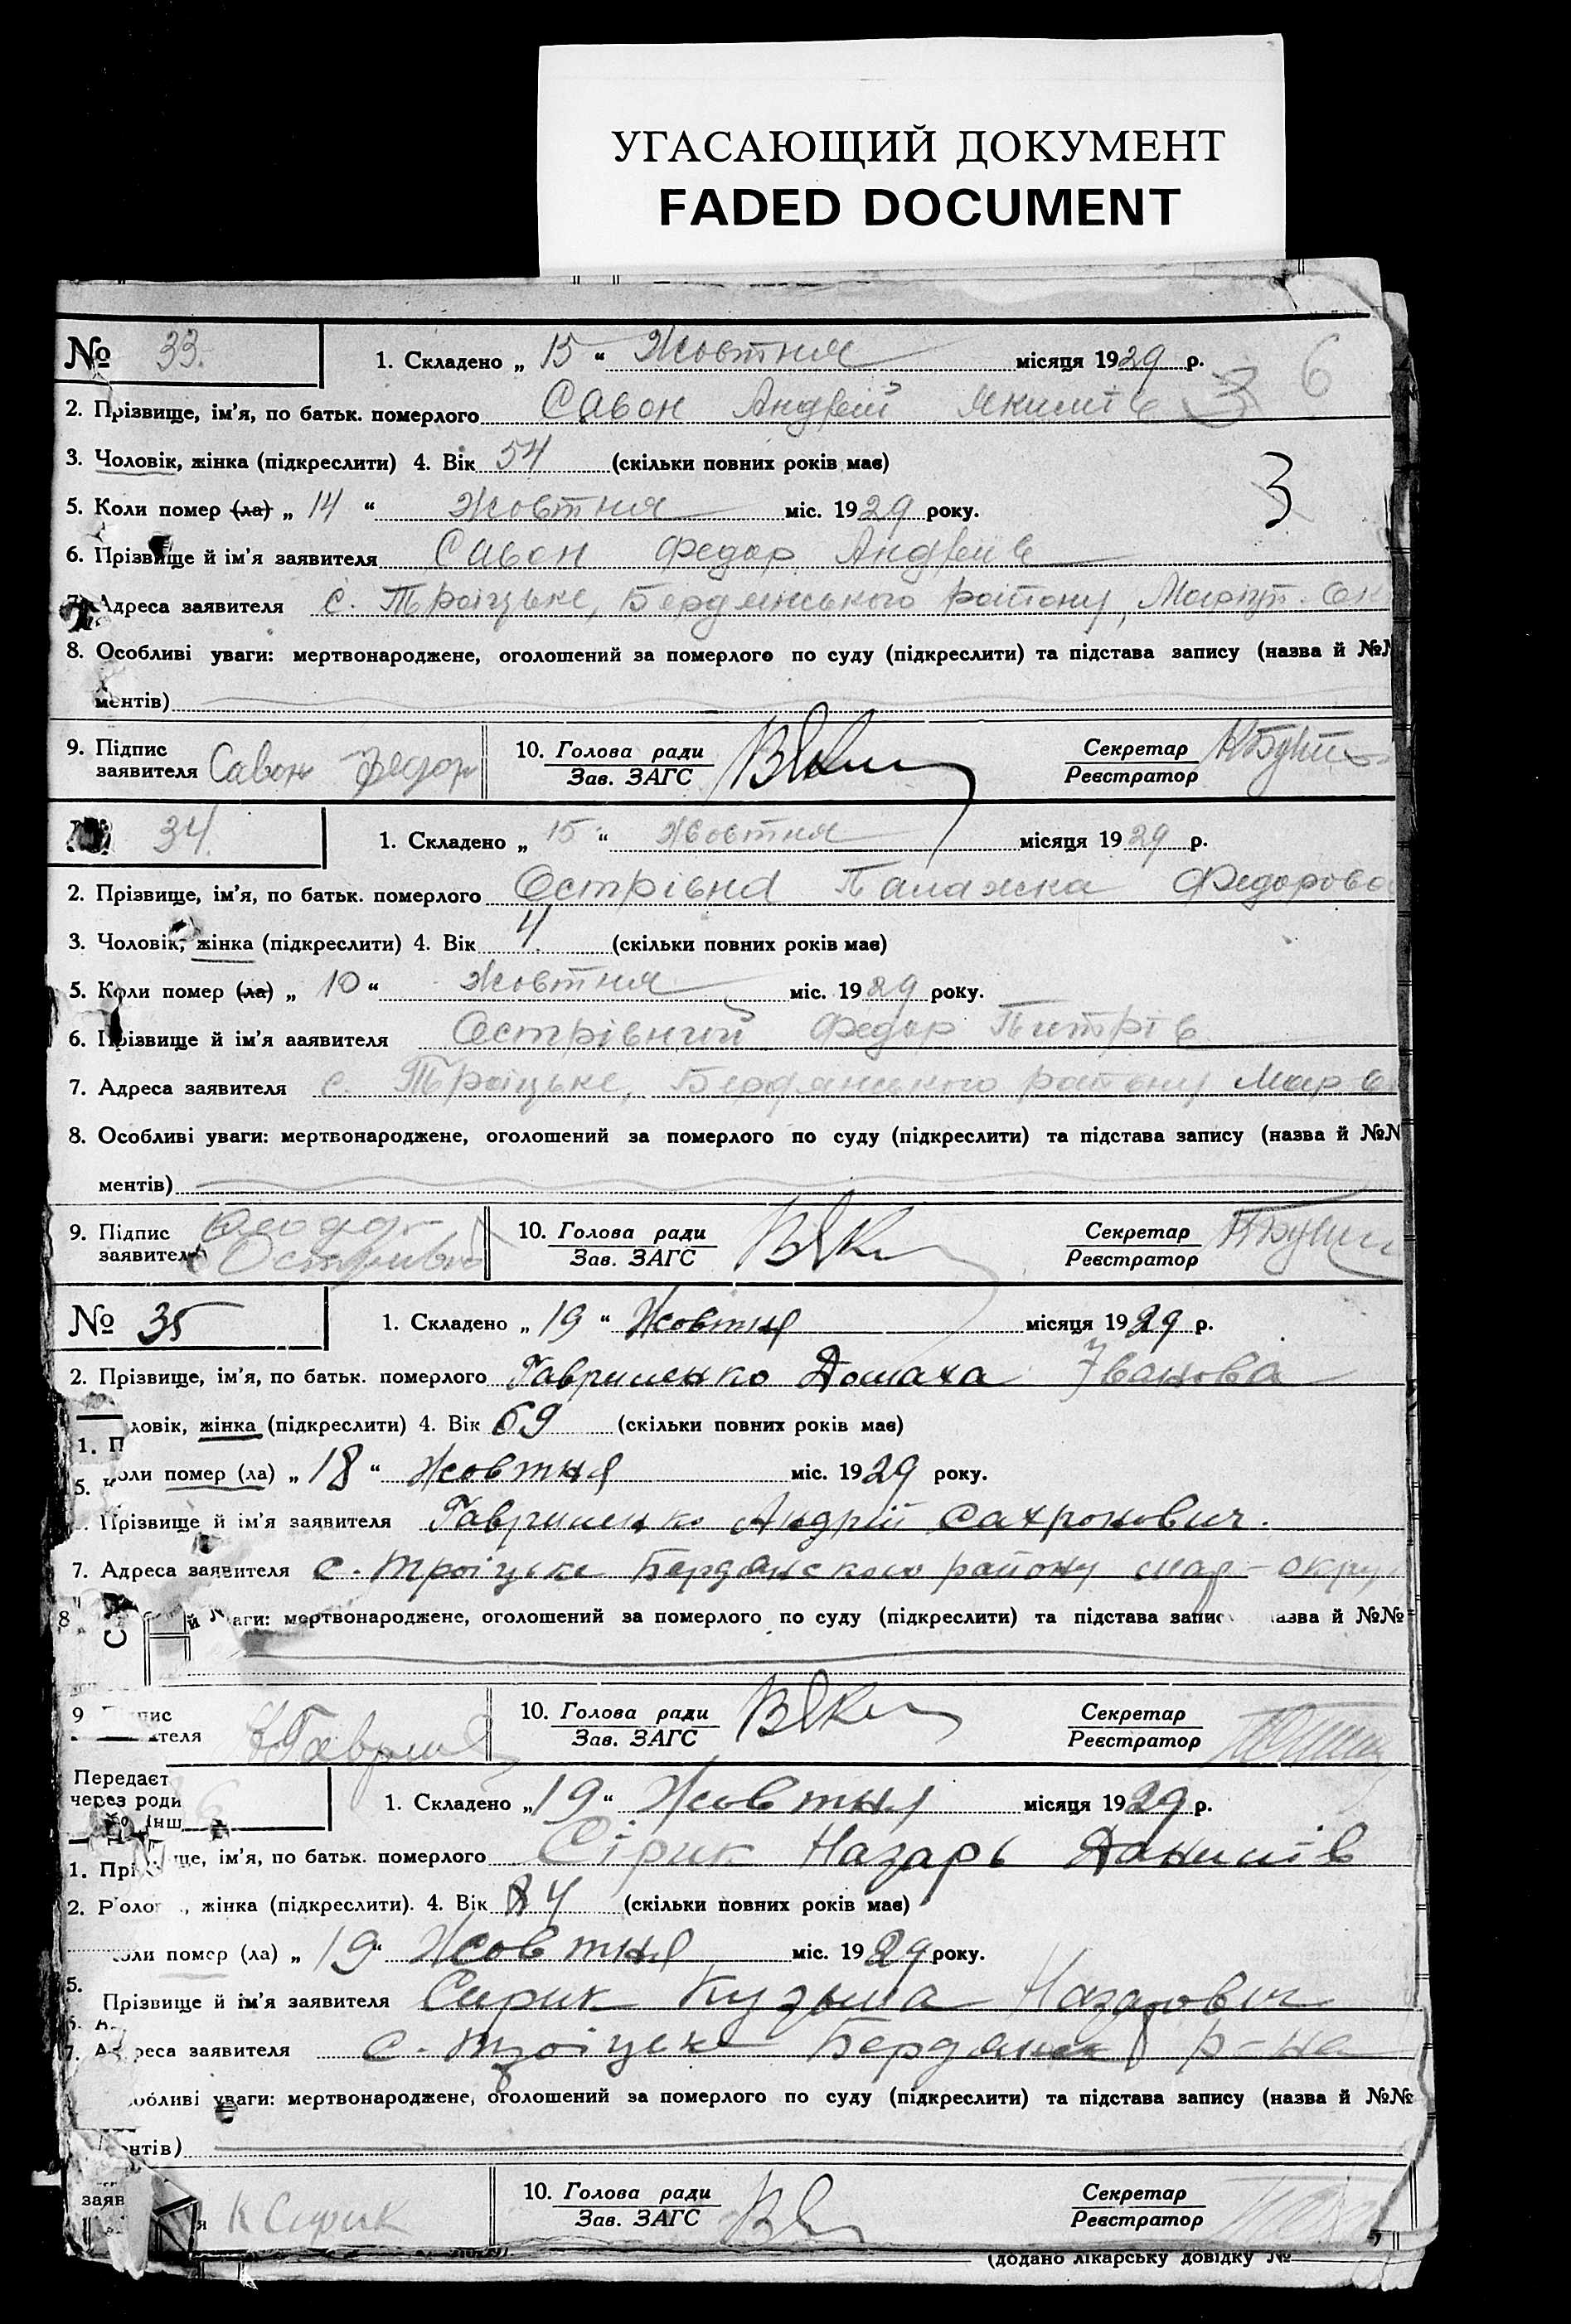 УГАСАЮЩИЙ ДОКУМЕНТ
FADED DOCUMENT
№ 33. 1. Складено „ 15 “ Жовтня місяця 1929 р. 3 6
2. Прізвище, ім’я, по батьк. померлого Савон Андрей Якимів
3. Чоловік, жінка (підкреслити) 4. Вік 54 (скільки повних років має)
3
5. Коли помер (ла) „ 14 “ Жовтня міс. 1929 року.
6. Прізвище й ім’я заявителя Савон Федор Андреїв
7. Адреса заявителя с. Троїцьке, Бердянського району, Маріуп. Ок
8. Особливі уваги: мертвонароджене, оголошений за померлого по суду (підкреслити) та підстава запису (назва й №№
ментів)
9. Підпис заявителя Савон Федор 10. Голова ради Зав. ЗАГС Секретар Реєстратор
34. 1. Складено „ 15 “ Жовтня місяця 1929 р.
2. Прізвище, ім’я, по батьк. померлого Острівна Палажка Федорова
3. Чоловік, жінка (підкреслити) 4. Вік 4 (скільки повних років має)
5. Коли помер (ла) „ 10 “ Жовтня міс. 1929 року.
6. Прізвище й ім’я ааявителя Острівний Федор Питрів
7. Адреса заявителя с. Троїцьке, Бердянського району Мар
8. Особливі уваги: мертвонароджене, оголошений за померлого по суду (підкреслити) та підстава запису (назва й №№
ментів)
9. Підпис заявителя 10. Голова ради Зав. ЗАГС Секретар Реєстратор
№ 35 1. Складено „ 19 “ Жовтня місяця 1929 р.
2. Прізвище, ім’я, по батьк. померлого Гавриленко Домаха Іванова
ловік, жінка (підкреслити) 4. Вік 69 (скільки повних років має)
1. П
5. оли помер (ла) „ 18 “ Жовтня міс. 1929 року.
Прізвище й ім’я заявителя Гавриленко Андрій Сахронович.
7. Адреса заявителя с. Троіцьке Бердянського району мар-окру
8 й уваги: мертвонароджене, оголошений за померлого по суду (підкреслити) та підстава запис азва й №№
9 пис теля Гаврил 10. Голова ради Зав. ЗАГС Секретар Реєстратор
Передаєт
через роди
інш
1. Складено „ 19 “ Жовтня місяця 1929 р.
1. Прі ще, ім’я, по батьк. померлого Сірик Назарь Данилів
2. Р олов , жінка (підкреслити). 4. Вік 84 (скільки повних років має)
оли помер (ла) „ 19 “ Жовтня міс. 1929 року.
5.
Прізвище й ім’я заявителя Сирик Кузьма Назарович
7. Адреса заявителя с. Троіцьке Бердянск р-на
обливі уваги: мертвонароджене, оголошений за померлого по суду (підкреслити) та підстава запису (назва й №№
нтів)
заяв я К Сирик 10. Голова ради Зав. ЗАГС Секретар Реєстратор
(додано лікарську довідку №